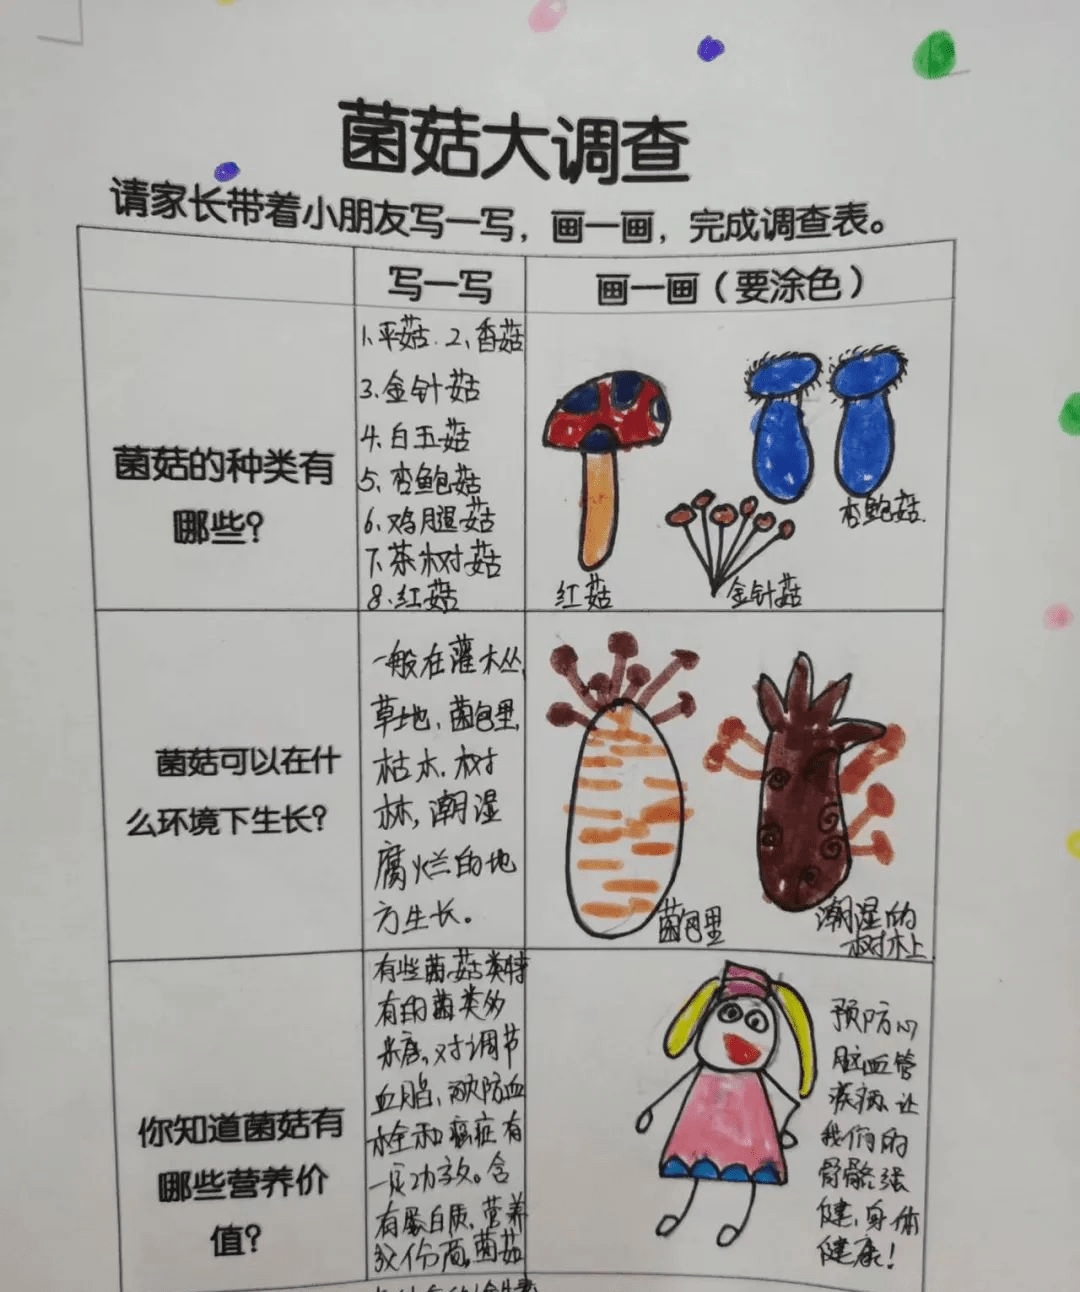 菌菇大调查
请家长带着小朋友写一写，画一画，完成调查表。
写一写
画一画（要涂色）
菌菇的种类有
哪些？
1、平菇. 2、香菇
3、金针菇
4、白玉菇
5、杏鲍菇
6、鸡腿菇
7、茶树菇
8、红菇
红菇
金针菇
杏鲍菇.
菌菇可以在什
么环境下生长？
一般在灌木丛,
草地、菌包里
枯木、树
林, 潮湿
腐烂的地
方生长。
菌包里
潮湿的
树木上
你知道菌菇有
哪些营养价
值？
有些菌菇类特
有的菌类多
糖, 对调节
血脂、预防血
栓和癌症有
一定功效。含
有蛋白质、营养
菌菇
预防心
脑血管
疾病, 让
我们的
骨骼强
健、身体
健康！